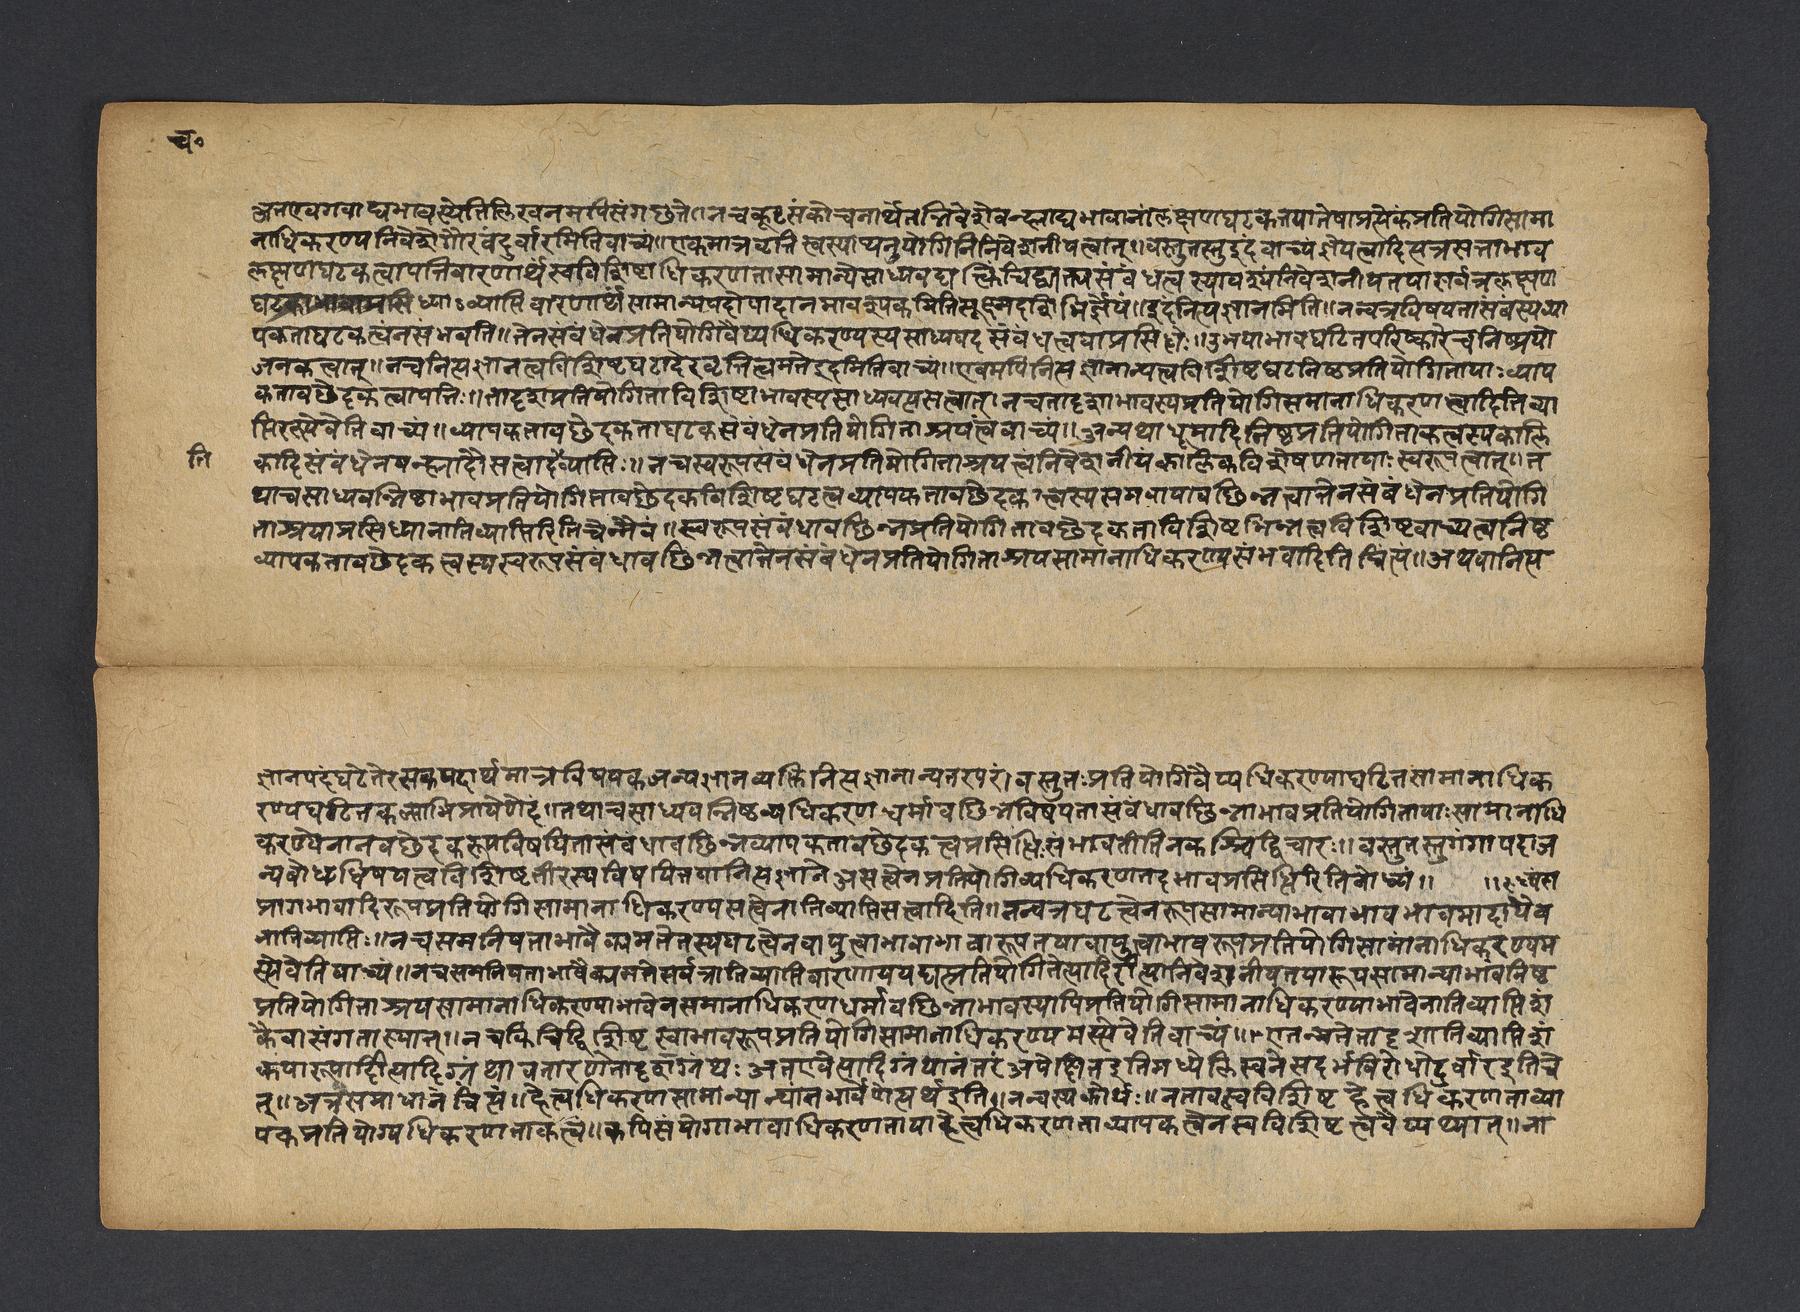 च०
अतएवगवाद्यभावस्येतिलिखनमपिसंगछते॥नचकूटसंकोचनार्थंतन्निवेशेवन्ह्याद्यभावानांलक्षणघटकतयातेषांप्रत्येकंप्रतियोगिसामा
नाधिकरण्यनिवेशेगौरवंदुर्वारमितिवाच्यं॥एकमात्रवृत्तिस्वस्याप्यनुयोगिनिनिवेशनीयत्वात्॥वस्तुतस्तुइदंवाच्यंज्ञेयत्वादित्यत्रसत्ताभाव
लक्षणघटकत्वापत्तिवारणार्थंस्वविशिष्टाधिकरणतासामान्येसाध्यवद्य
सामान्यपदोपादानमावश्यकमितिसूक्ष्मदर्शिभिर्ज्ञेयं॥इदंनित्यज्ञानमिति॥नन्वत्रविषयतासंबंस्यव्या
पकताघटकत्वंनसंभवति॥तेनसंबंधेनप्रतियोगिवैय्यधिकरण्यस्यसाध्यवदसंबंधत्वस्याप्रसिद्धेः॥उभयाभावघटितपरिष्कारेचनिष्प्रयो
जनकत्वात्॥नचनित्यज्ञानत्वविशिष्टघटादेरवृत्तित्वमतेइदमितिवाच्यं॥एवमपिनित्यज्ञानान्यत्वविशिष्टघटनिष्ठप्रतियोगितायाःव्याप
कतावछेदकत्वापत्तिः॥तादृशप्रतियोगिताविशिष्टाभावस्यसाध्यवत्यसत्वात्।नचतादृशाभावस्यप्रतियोगिसमानाधिकरणत्वादितिव्या
प्तिरस्त्येवेतिवाच्यं॥व्यापकतावछेदकताघटकसंबंधेनप्रतियोगिताश्रयत्वंवाच्यं॥अन्यथाधूमादिनिष्ठप्रतियोगिताकत्वस्यकालि
ति
कादिसंबंधेनवन्ह्यादौसत्वादव्याप्तिः॥नचस्वरूपसंबंधेनप्रतियोगिताश्रयत्वंनिवेशनीयंकालिकविशेषणतायाःस्वरूपत्वात्॥त
थाचसाध्यवन्निष्ठाभावप्रतियोगितावछेदकविशिष्टघटत्वव्यापकतावछेदकत्वस्यसमवायावछिन्नत्वात्तेनसंबंधेनप्रतियोगि
ताश्रयाप्रसिध्यानातिव्याप्तिरितिचेन्मैवं॥स्वरूपसंबंधावछिन्नप्रतियोगितावछेदकताविशिष्टभिन्नत्वविशिष्टवाच्यत्वनिष्ठ
व्यापकतावछेदकत्वस्यस्वरूपसंबंधावछिन्नत्वात्तेनसंबंधेनप्रतियोगिताश्रयसामानाधिकरण्यसंभवादितिचिंत्य॥अथवानित्य
ज्ञानपदंघटेतेरसकपदार्थमात्रविषयकजन्यज्ञानव्यक्तिनित्यज्ञानान्यतरपरं।वस्तुतःप्रतियोगिवैय्यधिकरण्याघटितसामानाधिक
रण्यघटितकल्पाभिप्रायेणेदं।तथाचसाध्यवन्निष्ठव्यधिकरणधर्मावछिन्नविषयतासंबंधावछिन्नाभावप्रतियोगितायाःसामानाधि
करण्येनानवछेदकरूपविषयितासंबंधावछिन्नव्यापकतावछेदकत्वप्रसिद्धिःसंभवतीतिनकश्चिद्विचारः॥वस्तुतस्तुगंगापदाज
न्यबोधविषयत्वविशिष्टतीरस्यविषयितयानित्यज्ञानेअसत्वेनप्रतियोगिव्यधिकरणतदभावप्रसिद्धिरितिबोध्यं॥ ॥ध्वंस
प्रागभावादिरूपप्रतियोगिसामानाधिकरण्यसत्वेनातिव्याप्तिसत्वादिति॥नन्वत्रघटत्वेनरूपसामान्याभावाभावमादायैव
नातिव्याप्तिः॥नचसमनियताभावैक्यमतेतस्यघटत्वेनवायुत्वाभावाभावरूपतयावायुत्वाभावरूपप्रतियोगिसामानाधिकरण्यम
स्त्येवेतिवाच्यं॥नचसमनियताभावैक्यमतेसर्वत्रातिव्याप्तिवारणाययद्यत्प्रतियोगितेत्यादिरीत्यानिवेशनीयतयारूपसामान्याभावनिष्ठ
प्रतियोगिताश्रयसामानाधिकरण्याभावेनसमानाधिकरणधर्मावछिन्नाभावस्यापिप्रतियोगिसामानाधिकरण्याभावेनातिव्याप्तिशं
कैवासंगतास्यात्॥नचकिंचिद्विशिष्टस्वाभावरूपप्रतियोगिसामानाधिकरण्यमस्त्येवेतिवाच्यं॥एतन्मतेतादृशातिव्याप्तिशं
अतएवेत्यादिग्रंथानंतरंअपेक्षितइतिमध्येलिखनेसंदर्भविरोधोदुर्वारइतिचे
त्॥अत्रसमाधानंचिंत्यं॥हेत्वधिकरणसामान्यान्यान्तर्भावेणेत्यर्थइति॥नन्वस्यकोर्थः॥नतावत्स्वविशिष्टहेत्वधिकरणताव्या
पकप्रतियोग्यधिकरणताकत्वं॥कपिसंयोगाभावाधिकरणतायाहेत्वधिकरणताव्यापकत्वेनस्वविशिष्टत्ववैय्यर्थ्यात्॥ना